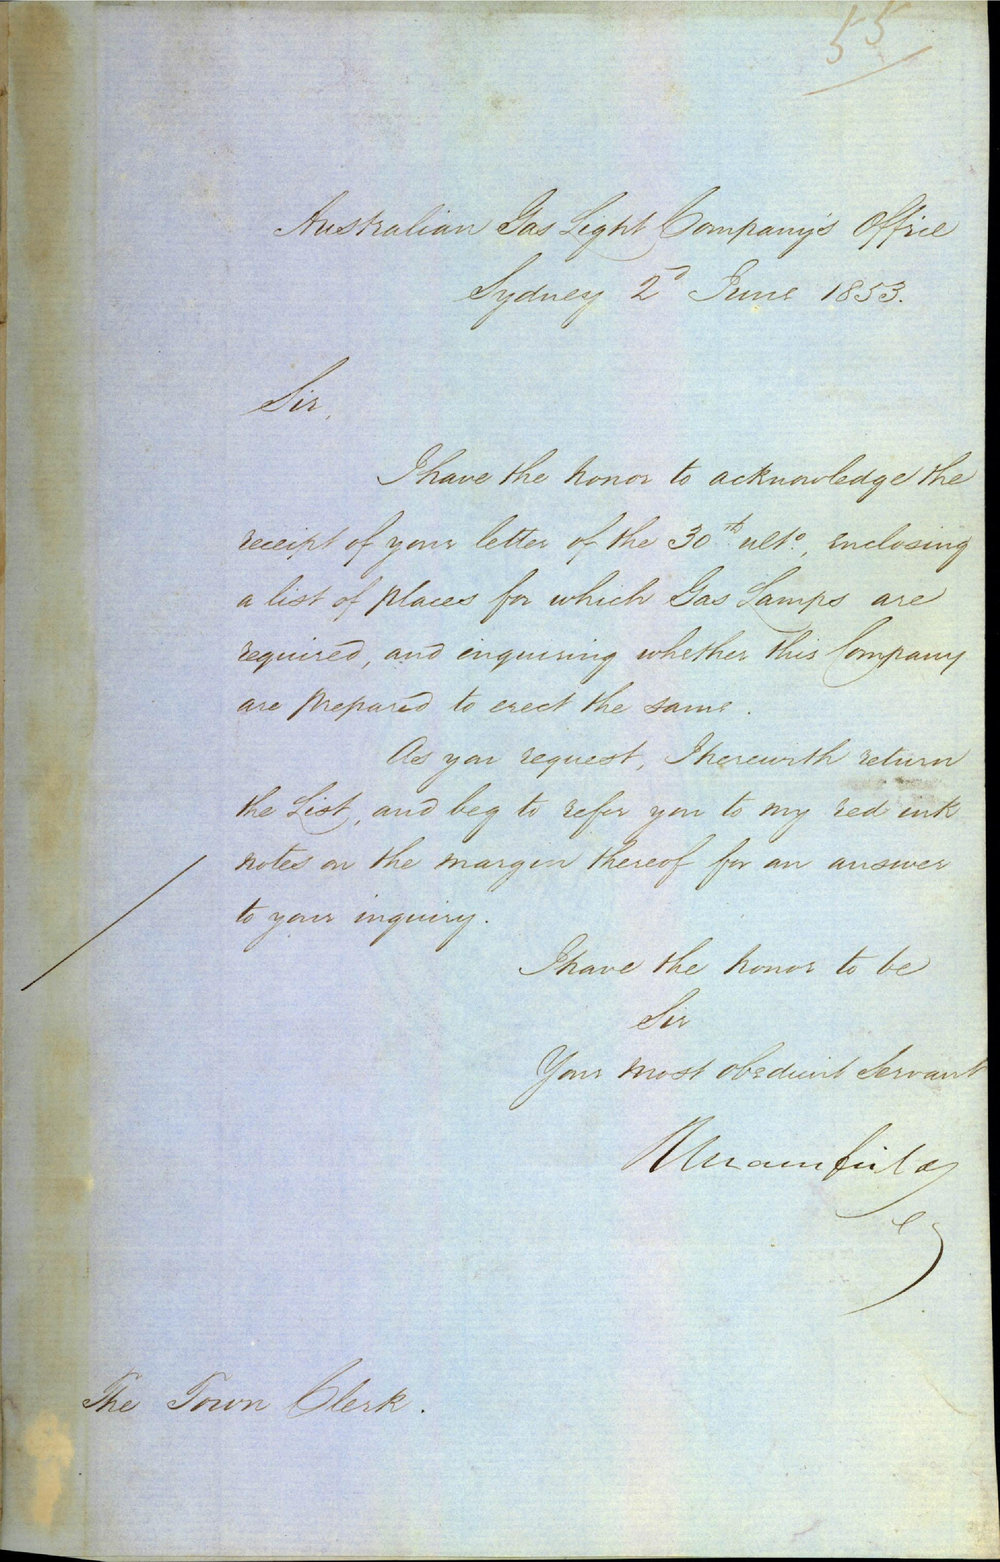 55
Australian Gas Light Company's Office
Sydney 2d June 1853.
Sir,
I have the honor to acknowledge the
receipt of your letter of the 30th ulto., enclosing
a list of places for which Gas Lamps are
required, and inquiring whether this Company
are prepared to erect the same.
As you request, I herewith return
the List, and beg to refer you to my red ink
notes on the margin thereof for an answer
to your inquiry.
I have the honor to be
Sir
Your most obedient Servant
The Town Clerk.